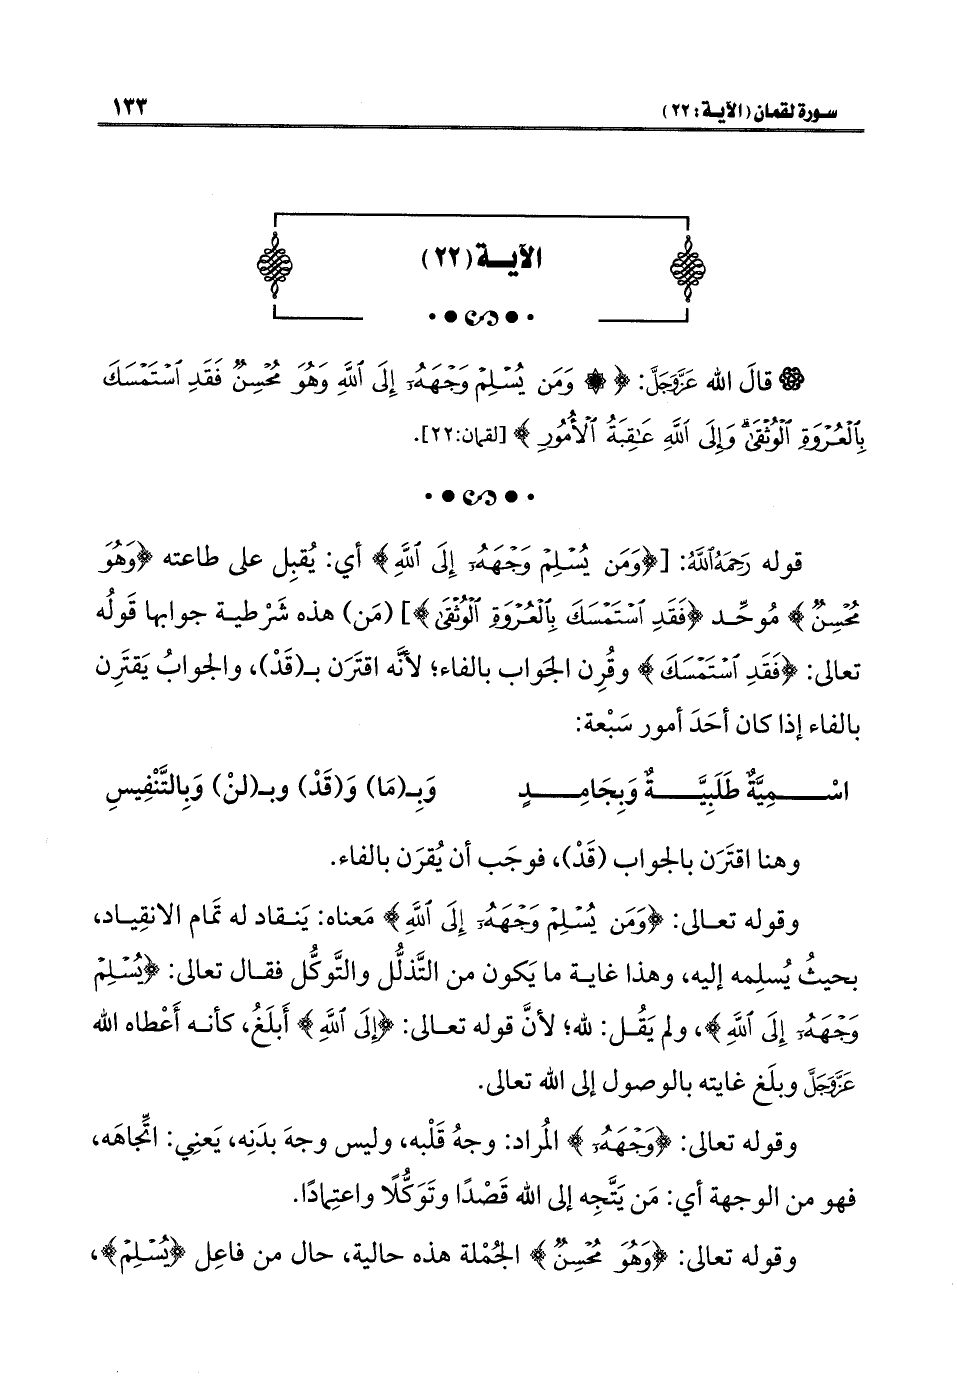 سورة لقمان (الآية: ٢٢)
١٣٣
الآيـــة (٢٢)
قالَ الله عَزَّوَجَلَّ: ﴿ ۞ وَمَن يُسْلِمْ وَجْهَهُۥٓ إِلَى ٱللَّهِ وَهُوَ مُحْسِنٌ فَقَدِ ٱسْتَمْسَكَ
بِٱلْعُرْوَةِ ٱلْوُثْقَىٰۗ وَإِلَى ٱللَّهِ عَـٰقِبَةُ ٱلْأُمُورِ ﴾ [لقمان:٢٢].
قوله رَحِمَهُ ٱللَّهُ: [﴿وَمَن يُسْلِمْ وَجْهَهُۥٓ إِلَى ٱللَّهِ﴾ أي: يُقبِل على طاعته ﴿وَهُوَ
مُحْسِنٌ﴾ مُوحِّد ﴿فَقَدِ ٱسْتَمْسَكَ بِٱلْعُرْوَةِ ٱلْوُثْقَىٰ﴾] (مَن) هذه شَرْطية جوابها قولُه
تعالى: ﴿فَقَدِ ٱسْتَمْسَكَ﴾ وقُرِن الجَواب بالفاء؛ لأنَّه اقتَرَن بـ(قَدْ)، والجوابُ يَقتَرِن
بالفاء إذا كان أحَدَ أمور سَبْعة:
اسْـــمِيَّةٌ طَلَبِيَّـــةٌ وَبِجَامِـــدٍ وَبِـ(مَا) وَ(قَدْ) وبـ(لنْ) وَبِالتَّنْفِيسِ
وهنا اقتَرَن بالجواب (قَدْ)، فوجَب أن يُقرَن بالفاء.
وقوله تعـالى: ﴿وَمَن يُسْلِمْ وَجْهَهُۥٓ إِلَى ٱللَّهِ﴾ مَعناه: يَنـقاد له تَمام الانقِيـاد،
بحيثُ يُسلِمه إليه، وهذا غايـة ما يَكون من التَّذلُّل والتَّوكُّل فقـال تعالى: ﴿يُسْلِمْ
وَجْهَهُۥٓ إِلَى ٱللَّهِ﴾، ولم يَقُـل: لله؛ لأنَّ قوله تعـالى: ﴿إِلَى ٱللَّهِ﴾ أَبلَغُ، كأنـه أَعْطاه الله
عَزَّوَجَلَّ وبلَغ غايته بالوصول إلى الله تعالى.
وقوله تعالى: ﴿وَجْهَهُۥٓ﴾ المُراد: وجهُ قَلْبه، وليس وجهَ بدَنِه، يَعنِي: اتِّجاهَه،
فهو من الوجهة أي: مَن يَتَّجِه إلى الله قَصْدًا وتَوَكُّلًا واعتِمادًا.
وقوله تعالى: ﴿وَهُوَ مُحْسِنٌ﴾ الجُمْلة هذه حالية، حال من فاعِل ﴿يُسْلِمْ﴾،